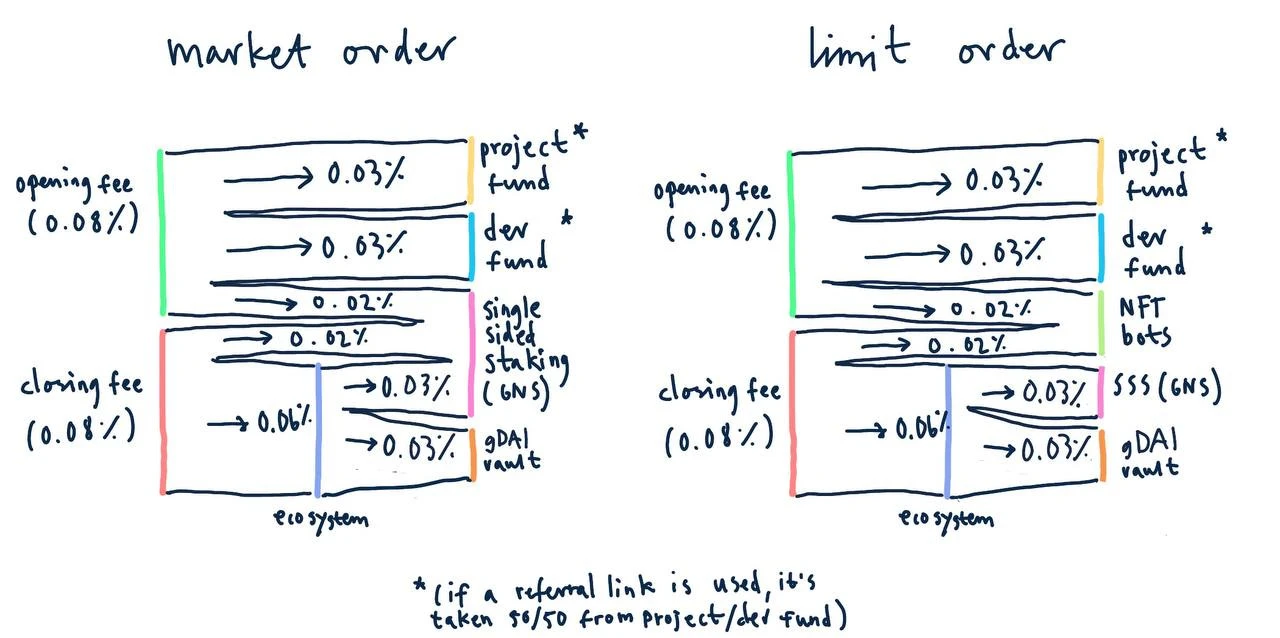 market order
opening fee
(0.08%)
closing fee
(0.08%)
→ 0.03%
→ 0.03%
→ 0.02%
→ 0.02%
→ 0.06%
→ 0.03%
→ 0.03%
project *
fund
dev *
fund
single
sided
staking
(GNS)
gDAI
vault
ecosystem
limit order
opening fee
(0.08%)
closing fee
(0.08%)
→ 0.03%
→ 0.03%
→ 0.02%
→ 0.02%
→ 0.06%
→ 0.03%
→ 0.03%
project *
fund
dev *
fund
NFT
bots
SSS (GNS)
gDAI
vault
ecosystem
* (if a referral link is used, it's
taken 50/50 from project/dev fund)